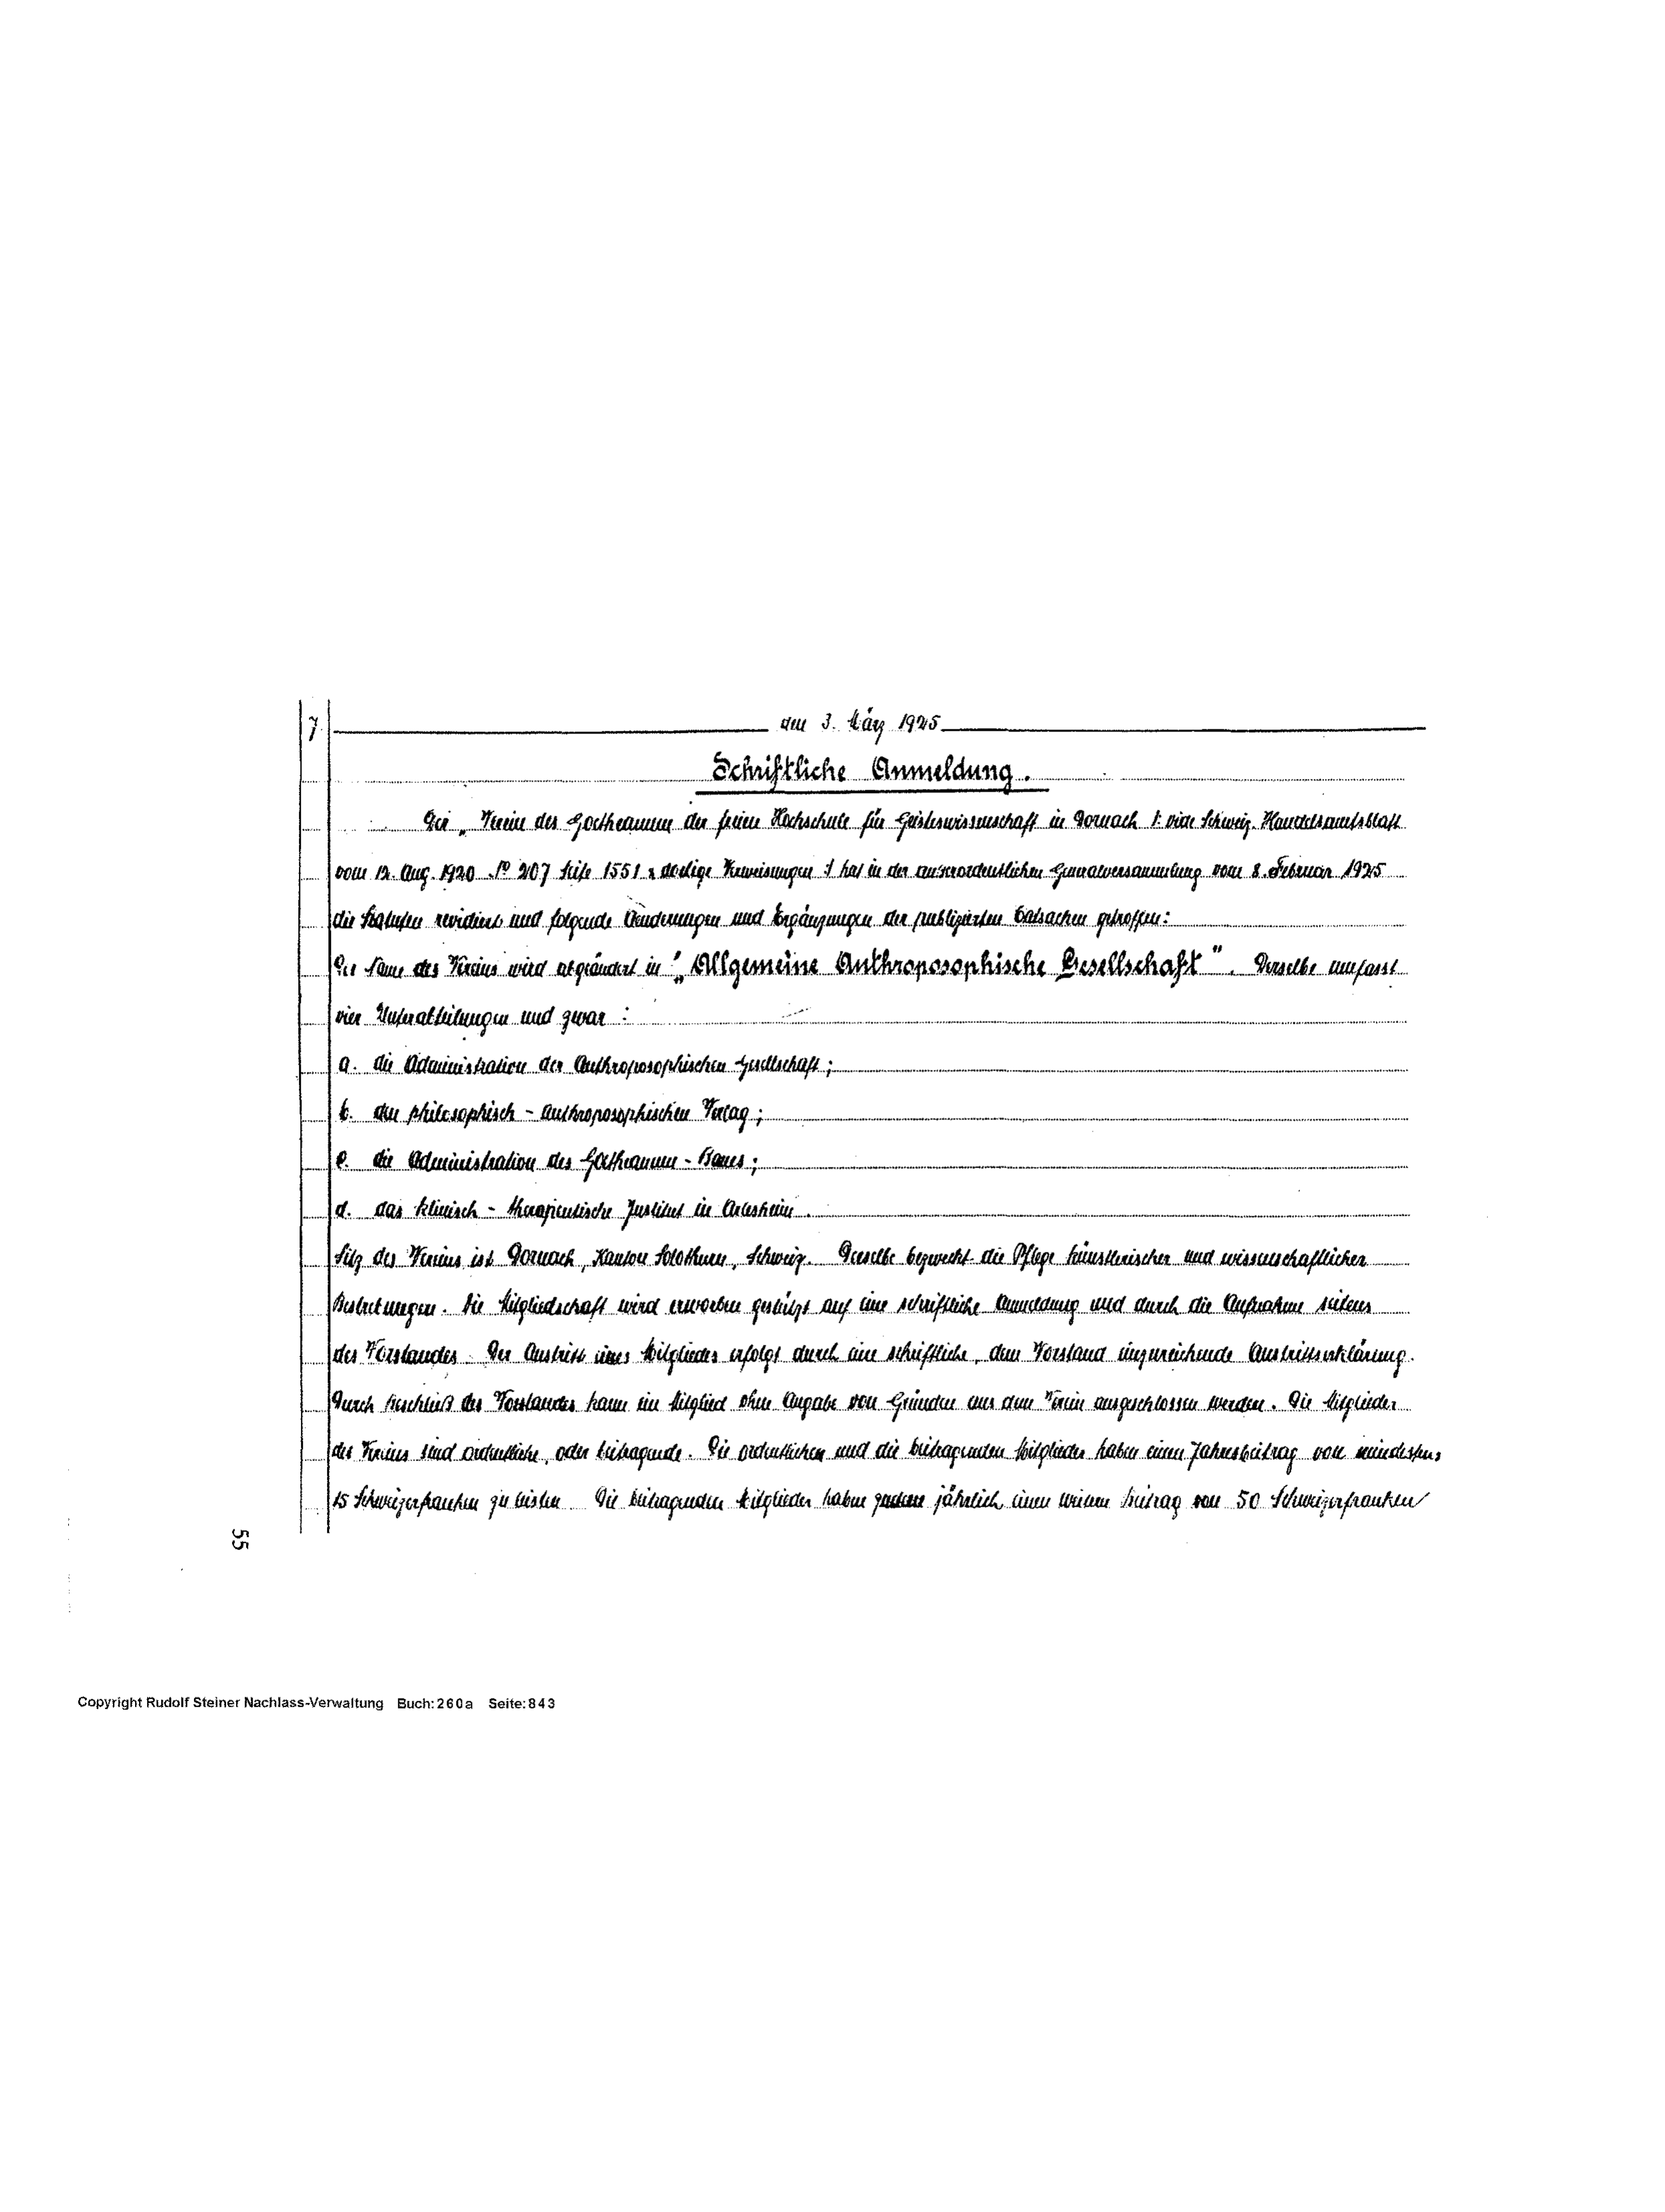 7.
den 3. März 1925
Schriftliche Anmeldung.
Der „Verein des Goetheanum der freien Hochschule für Geisteswissenschaft in Dornach /: vide Schweiz. Handelsamtsblatt
vom 12. Aug. 1920 No 207 Seite 1551 & dortige Verweisungen :/ hat in der ausserordentlichen Generalversammlung vom 8. Februar 1925
die Statuten revidiert und folgende Änderungen und Ergänzungen der publizierten Tatsachen getroffen:
Der Name des Vereins wird abgeändert in „Allgemeine Anthroposophische Gesellschaft". Derselbe umfasst
vier Unterabteilungen und zwar:
a. die Administration der Anthroposophischen Gesellschaft;
b. den philosophisch-anthroposophischen Verlag;
c. die Administration des Goetheanum-Baues;
d. das klinisch-therapeutische Institut in Arlesheim.
Sitz des Vereins ist Dornach, Kanton Solothurn, Schweiz. Derselbe bezweckt die Pflege künstlerischer und wissenschaftlicher
Bestrebungen. Die Mitgliedschaft wird erworben gestützt auf eine schriftliche Anmeldung und durch die Aufnahme seitens
des Vorstandes. Der Austritt eines Mitgliedes erfolgt durch eine schriftliche, dem Vorstand einzureichende Austrittserklärung.
Durch Beschluß des Vorstandes kann ein Mitglied ohne Angabe von Gründen aus dem Verein ausgeschlossen werden. Die Mitglieder
des Vereins sind ordentliche, oder beitragende. Die ordentlichen und die beitragenden Mitglieder haben einen Jahresbeitrag von mindestens
15 Schweizerfranken zu leisten. Die beitragenden Mitglieder haben jährlich einen weitern Beitrag von 50 Schweizerfranken
55
Copyright Rudolf Steiner Nachlass-Verwaltung Buch:260a Seite:843